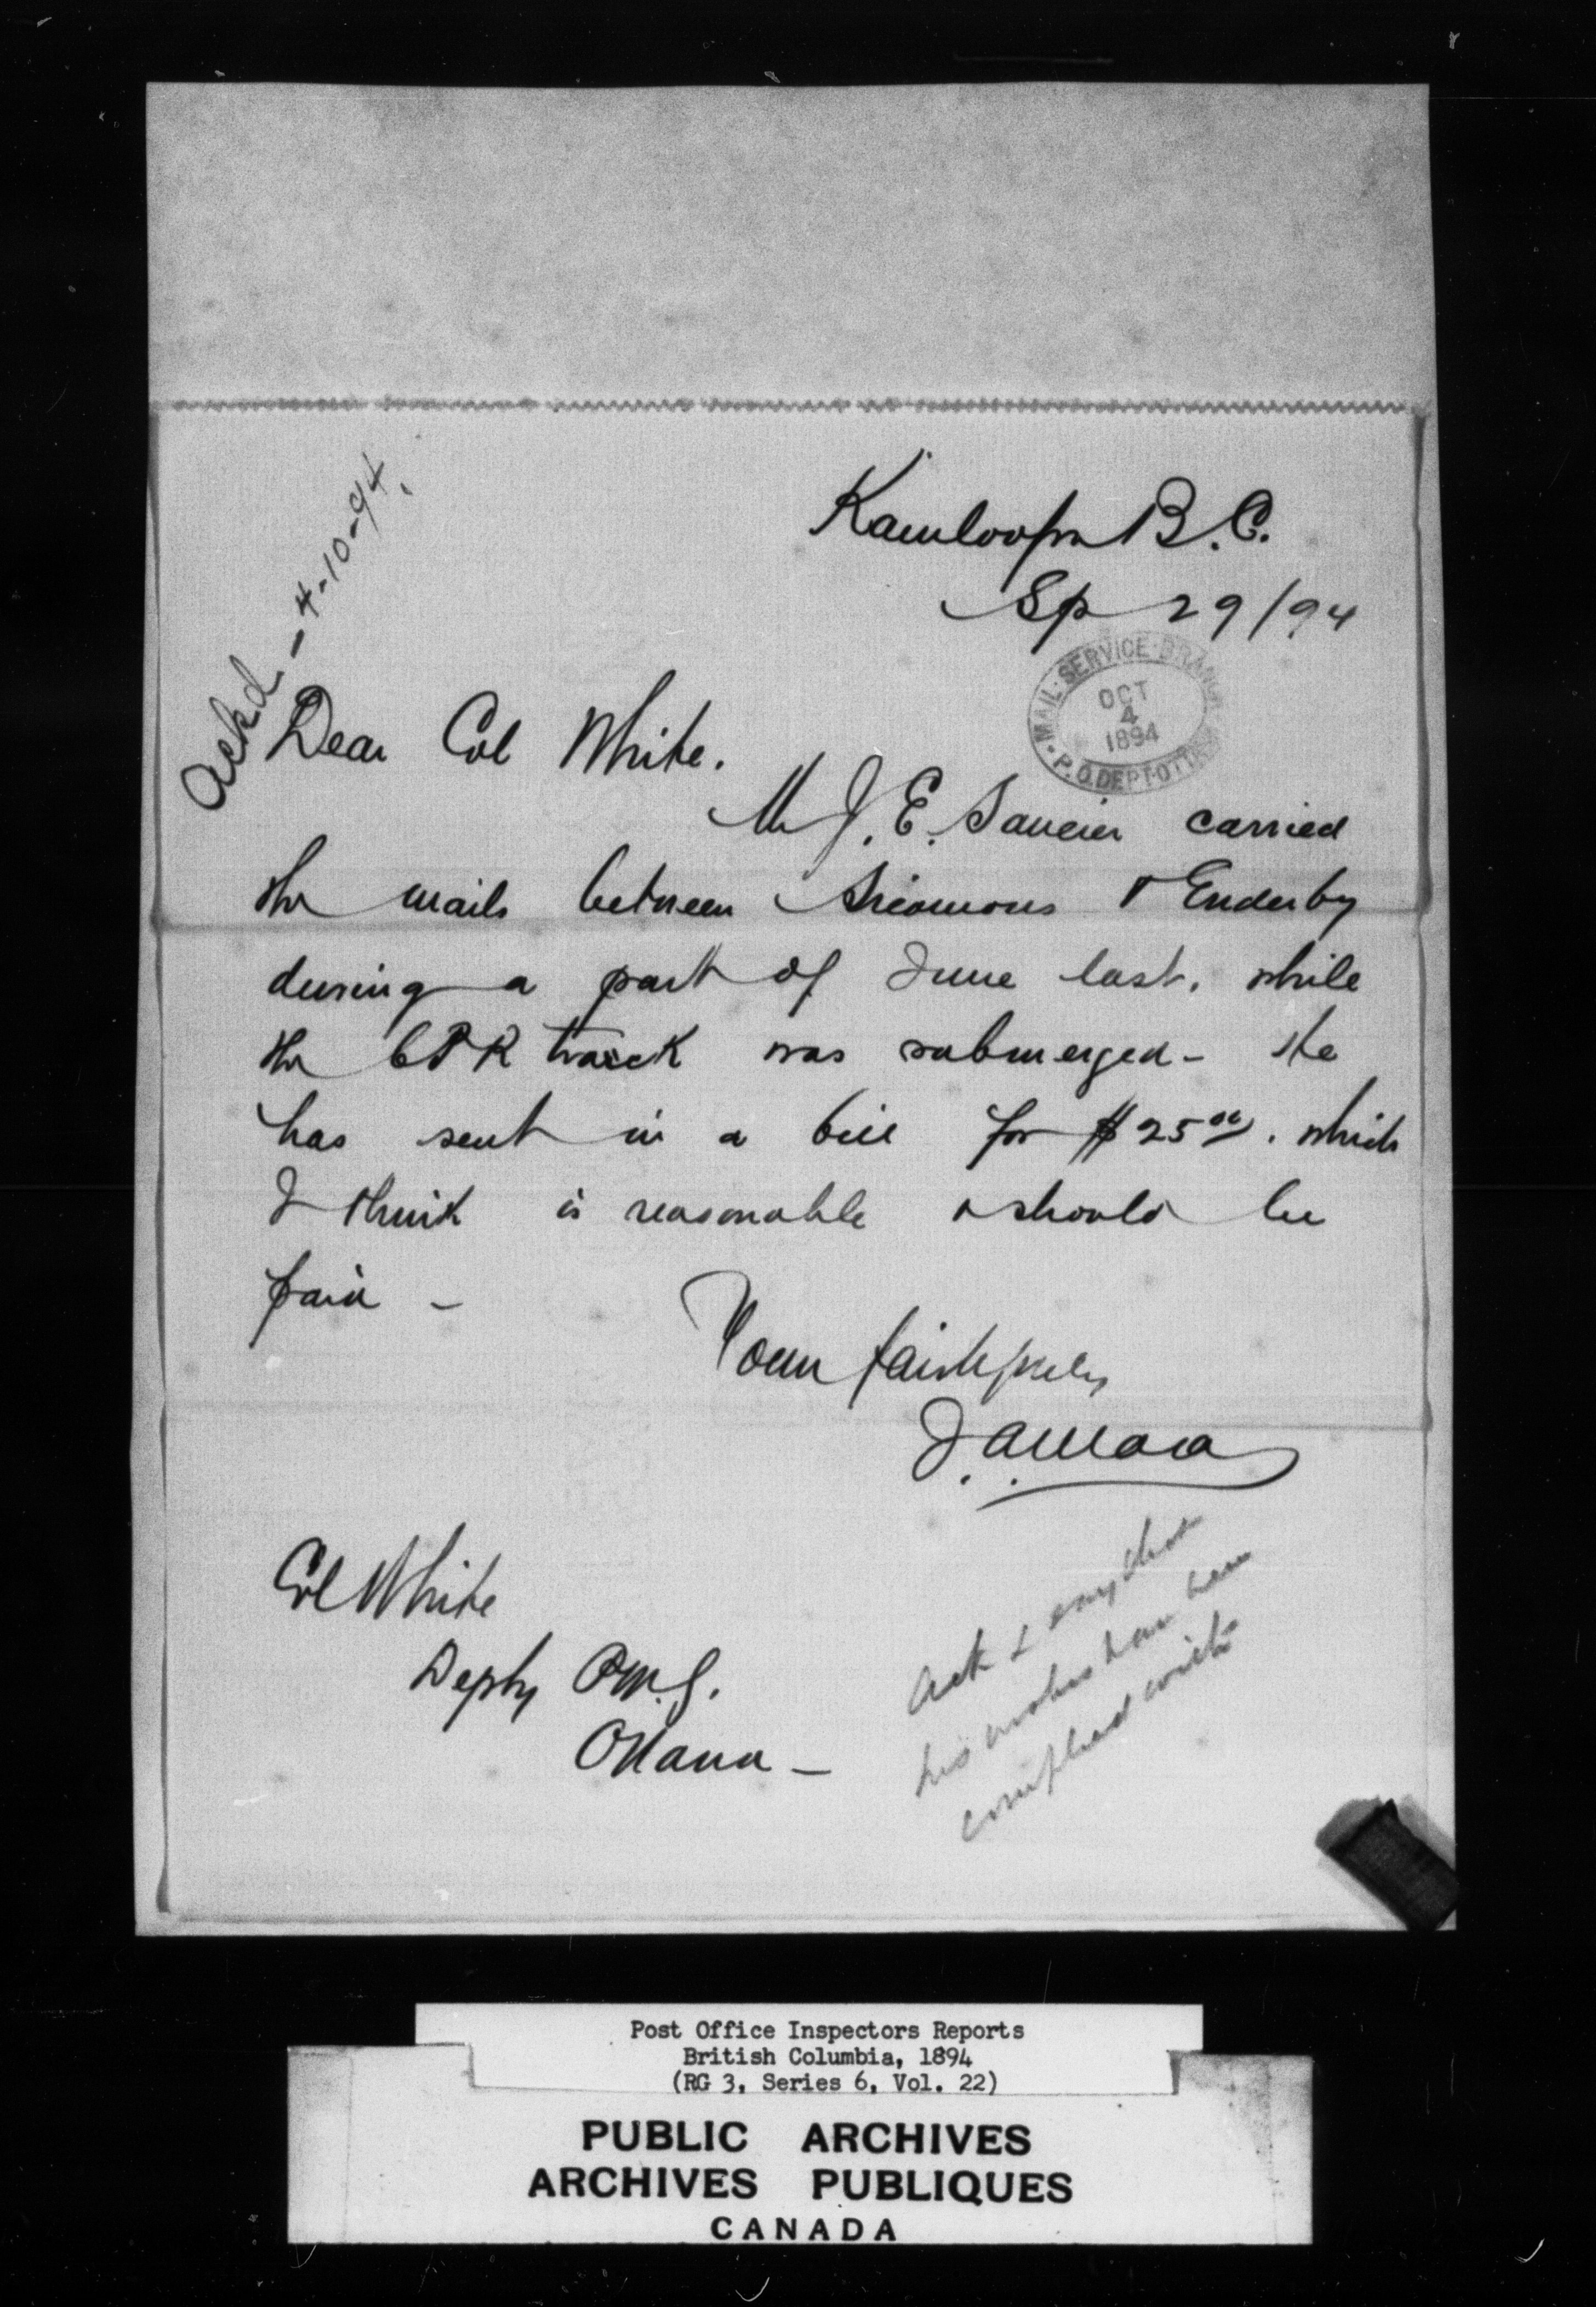 Ackd - 4-10-94.
Kamloops B.C.
Sp 29/94
MAIL SERVICE BRANCH
OCT
4
1894
P.O. DEPT OTTAWA
Dear Col White.
Mr J. E. Saucier carried
the mails between Sicamous & Enderby
during a part of June last, while
the CPR track was submerged - He
has sent in a bill for $25 00. which
I think is reasonable & should be
paid -
Yours faithfully
J. A. Mara
Col White
Depty P.M.G.
Ottawa -
Ack & say that
his wishes have been
complied with
Post Office Inspectors Reports
British Columbia, 1894
(RG 3, Series 6, Vol. 22)
PUBLIC ARCHIVES
ARCHIVES PUBLIQUES
CANADA